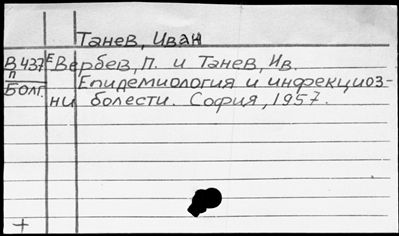 Танев, Иван
В 437 Е Вербев, П. и Танев, Ив.
п
Болг. Епидемиология и инфекциоз-
ни болести. София, 1957.
+